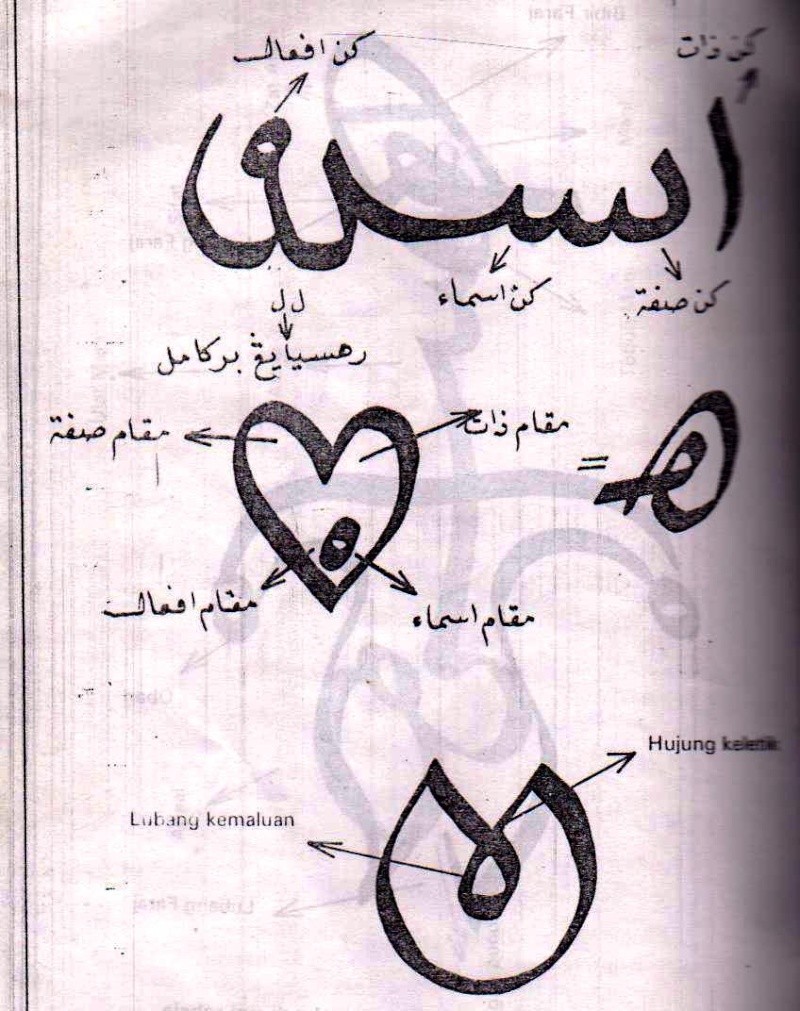 كن ذات
كن افعال
كن صفة
كن اسماء
ل ل
رهسيا يڠ بركامل
مقام ذات
مقام صفة
=
مقام افعال
مقام اسماء
Hujung
Lubang kemaluan